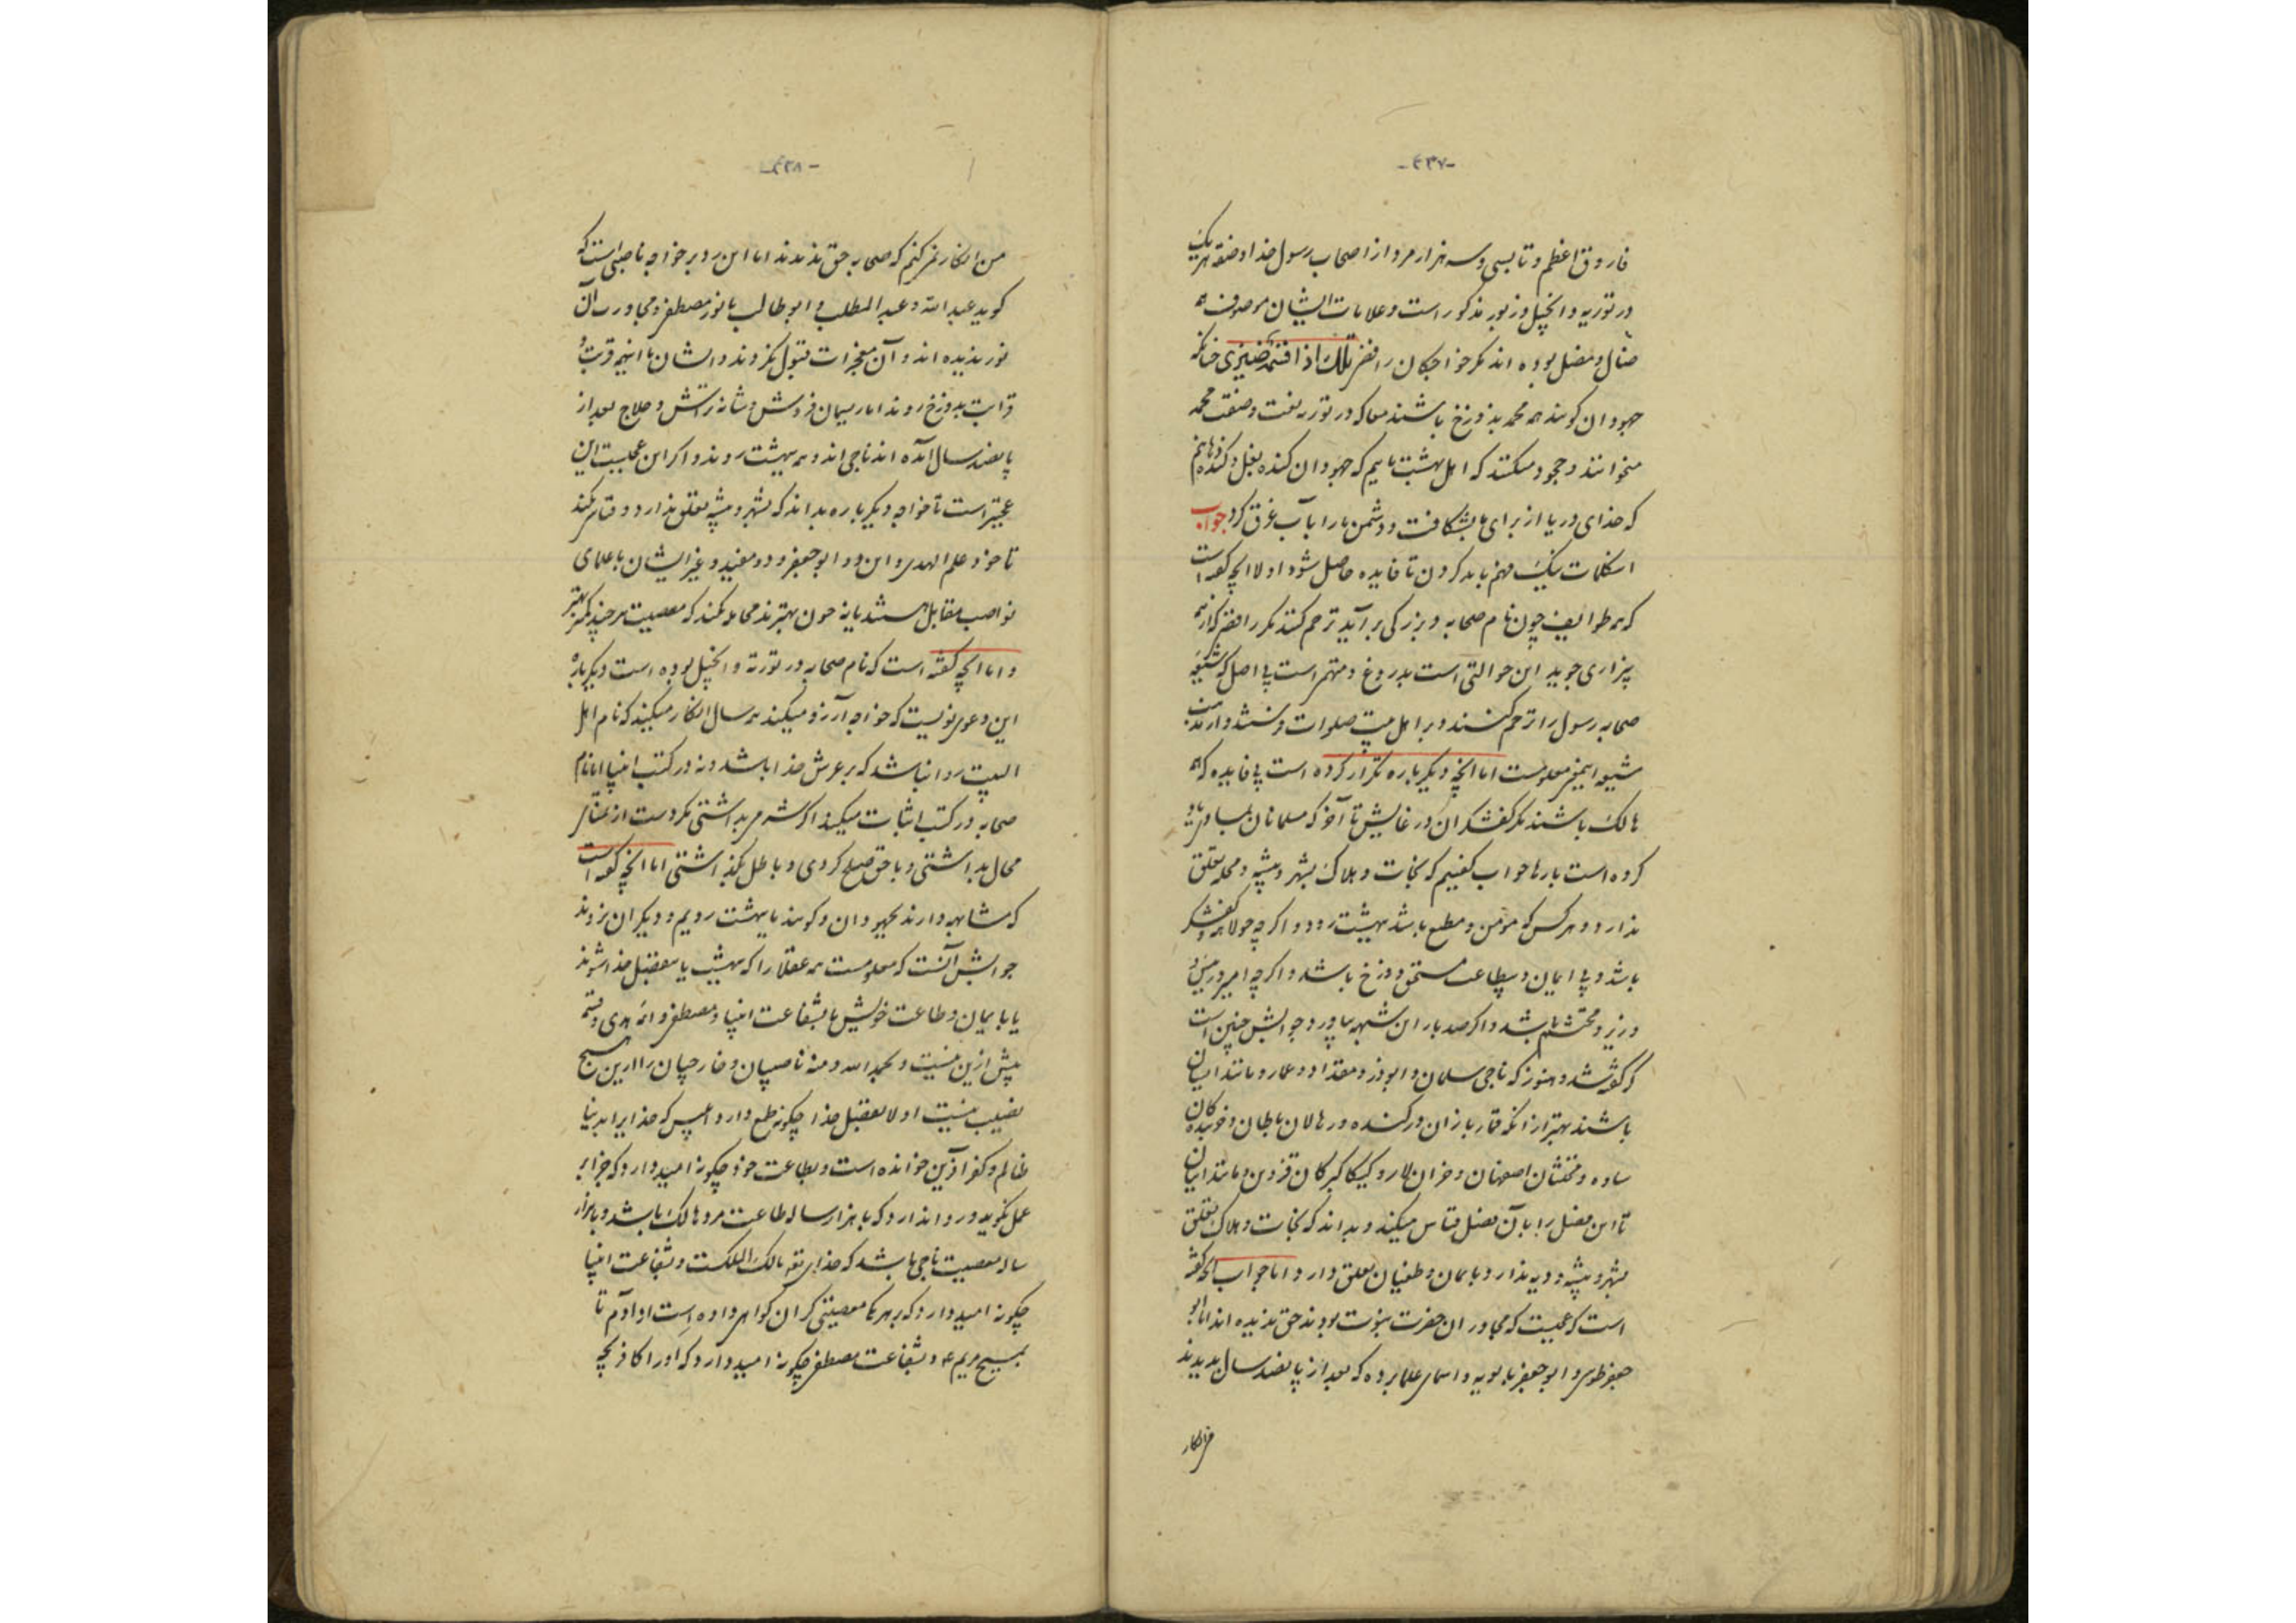 -۴۳۷-
فاروق اعظم و تا بسی و سه هزار مرد از اصحاب رسول خدا وصفت هر یک
در توریه و انجیل و زبور مذکور است و علامات ایشان موصوف همه
ضال و مضل بوده اند مگر خواجکان رافضی تلک اذا قسمة ضیزی چنانکه
جهودان کویند همه محمد بدوزخ باشند معما که در توریه نعت و صفت محمد
میخوانند و جحود میکنند که اهل بهشت مائیم که جهودان کنده بغل و کنده دهانیم
که خدای دریا از برای ما بشکافت و دشمن ما را بآب غرق کرد جواب
این کلمات نیک فهم باید کردن تا فایده حاصل شود اولا آنچه گفته است
که همه طوایف چون نام صحابه و بزرکی برآید ترحم کنند مگر رافضی که از همه
بیزاری جوید این حوالتی است بدروغ و تهمتی است بی اصل که شیعه
صحابه رسول را ترحم کنند و بر اهل بیت صلوات فرستند و از مذهب
شیعه اینمعنی معلومست اما آنچه دیگر باره تکرار کرده است بی فایده که همه
هالک باشند مگر کفشگران درغایش تا آخر که مسلمانان
کرده است بارها جواب گفتیم که نجات و هلاک بشهر و پیشه و محله تعلق
ندارد و هرکس که مومن و مطیع باشد ببهشت رود و اگرچه جولاهه و کفشگر
باشد و بی ایمان و بیطاعت مستحق دوزخ باشد و اگرچه امیر و رئیس و
وزیر و محتشم باشد و اگر صد بار این شبهه بیاورد جوابش چنین است
که گفته شد و هنوز که ناجی سلمان و ابوذر و مقداد و عمار و مانند ایشان
باشند بهتر از آنکه قماربازان درکنده و رهالان باطان و خربندکان
ساوه و مخنثان اصفهان و خران لار و کبرکان قزوین و مانند ایشان
تا این فصل را با آن فصل قیاس میکند و بداند که نجات و هلاک تعلق
بشهر و پیشه و دیه ندارد بایمان و طغیان تعلق دارد و اما جواب آنچه گفته
است که عجبست که مجاوران حضرت نبوت بودند حق ندیده اند اما ابو
جعفر طوسی و ابوجعفر بابویه و اسمای علما برده که بعد از پانصد سال بدیدند
من انکار
-۴۳۸-
من انکار نمی کنم که صحابه حق ندیدند اما این رد بر خواجه ناصبی است که
کوید عبدالله و عبدالمطلب و ابوطالب با نور مصطفی و مجاورت آن
نور ندیده اند و آن معجزات قبول نکردند و ایشان با اینهمه قربت و
قرابت بدوزخ روند اما ریسمان فروش و شانه تراش و حلاج بعد از
پانصد سال آمده اند ناجی اند و همه ببهشت روند و اگر این عجبست این
عجبتر است تا خواجه دیگر باره بداند که بشهر و پیشه تعلق ندارد و قیاس کند
تا خود علم الهدی و این دو ابوجعفر و دو مفید و غیر ایشان با علمای
نواصب مقابل هستند یا نه چون بهترند محابا نکند که معصیت هر چند کمتر بهتر
و اما آنچه گفته است که نام صحابه در توریه و انجیل بوده است دیگر باره
این دعوی نویست که خواجه آرزو میکند همه سال انکار میکند که نام اهل
البیت روا نباشد که بر عرش خدا باشد و نه در کتب انبیا اما نام
صحابه در کتب اثبات میکند اگر شرم بداشتی نکر دست از
محال بداشتی و با حق صلح کردی و باطل بگذاشتی اما آنچه گفته است
که مشابهه دارند بجهودان و کویند ما ببهشت رویم و دیگران نروند
جوابش آنست که معلومست همه عقلا را که ببهشت یا بفضل خدا شوند
یا بایمان و طاعت خویش یا بشفاعت انبیا و مصطفی و ائمه هدی و قسمی
بیش ازین نیست و بحمد الله و منه ناصبیان و خارجیان را ازین هیچ
نصیب نیست اولا بفضل خدا چکونه طمع دارد کسی که خدایرا بدنیا
ظالم و کفر آفرین خوانده است و بطاعت خود چکونه امید دارد که جزا بر
عمل نگوید و روا دارد که با هزار ساله طاعت مرد هالک باشد و با هزار
ساله معصیت ناجی باشد که خدای تعه مالک الملکست و بشفاعت انبیا
چکونه امید دارد که بر همه بمعصیتی گران کواهی داده است از آدم تا
بمسیح مریم ع و بشفاعت مصطفی چکونه امید دارد که او را کافر بچه